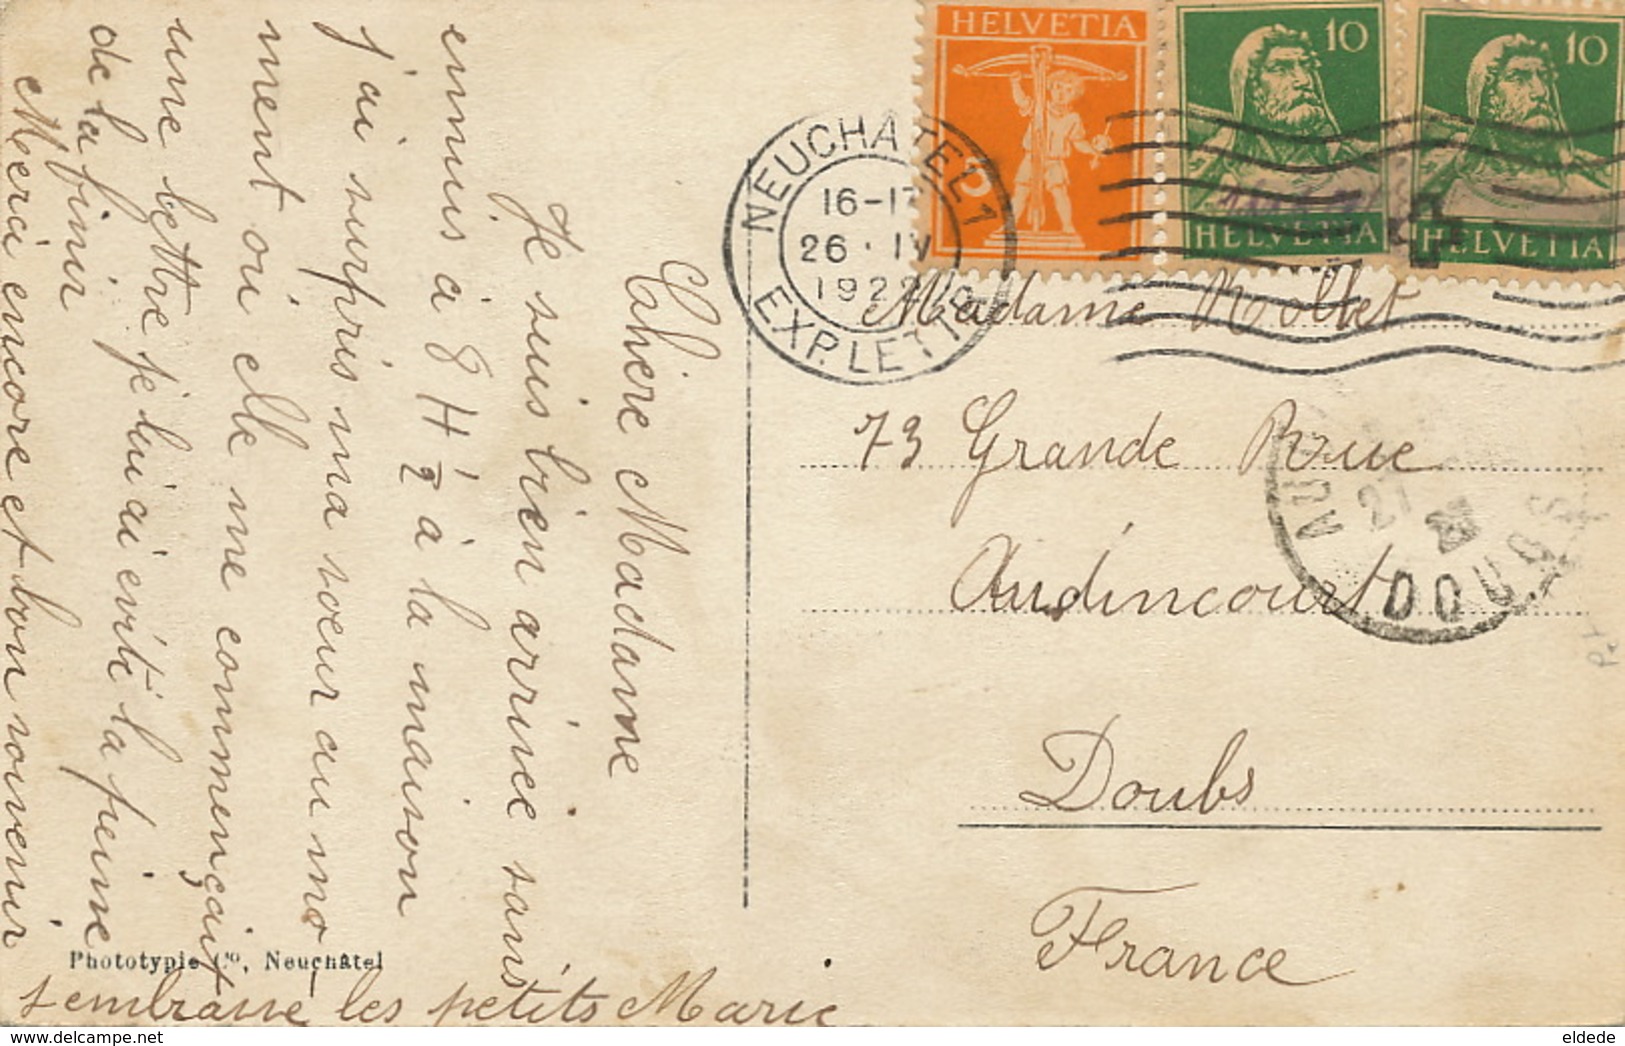 HELVETIA
5
10
HELVETIA
10
HELVETIA
NEUCHATEL 1
16-17
26 · IV
1922
EXP. LETTR.
Madame
73 Grande Rue
Audincourt
Doubs
France
27
DOUBS
Chère Madame
Je suis bien arrivée sans
ennuis à 8 H ½ à la maison
j'ai surpris ma soeur au mo
ment où elle me commençait
une lettre je lui ai evité la peine
de la finir
Merci encore et bon souvenir
J'embrasse les petits Marie
Phototypie Co, Neuchâtel
eldede